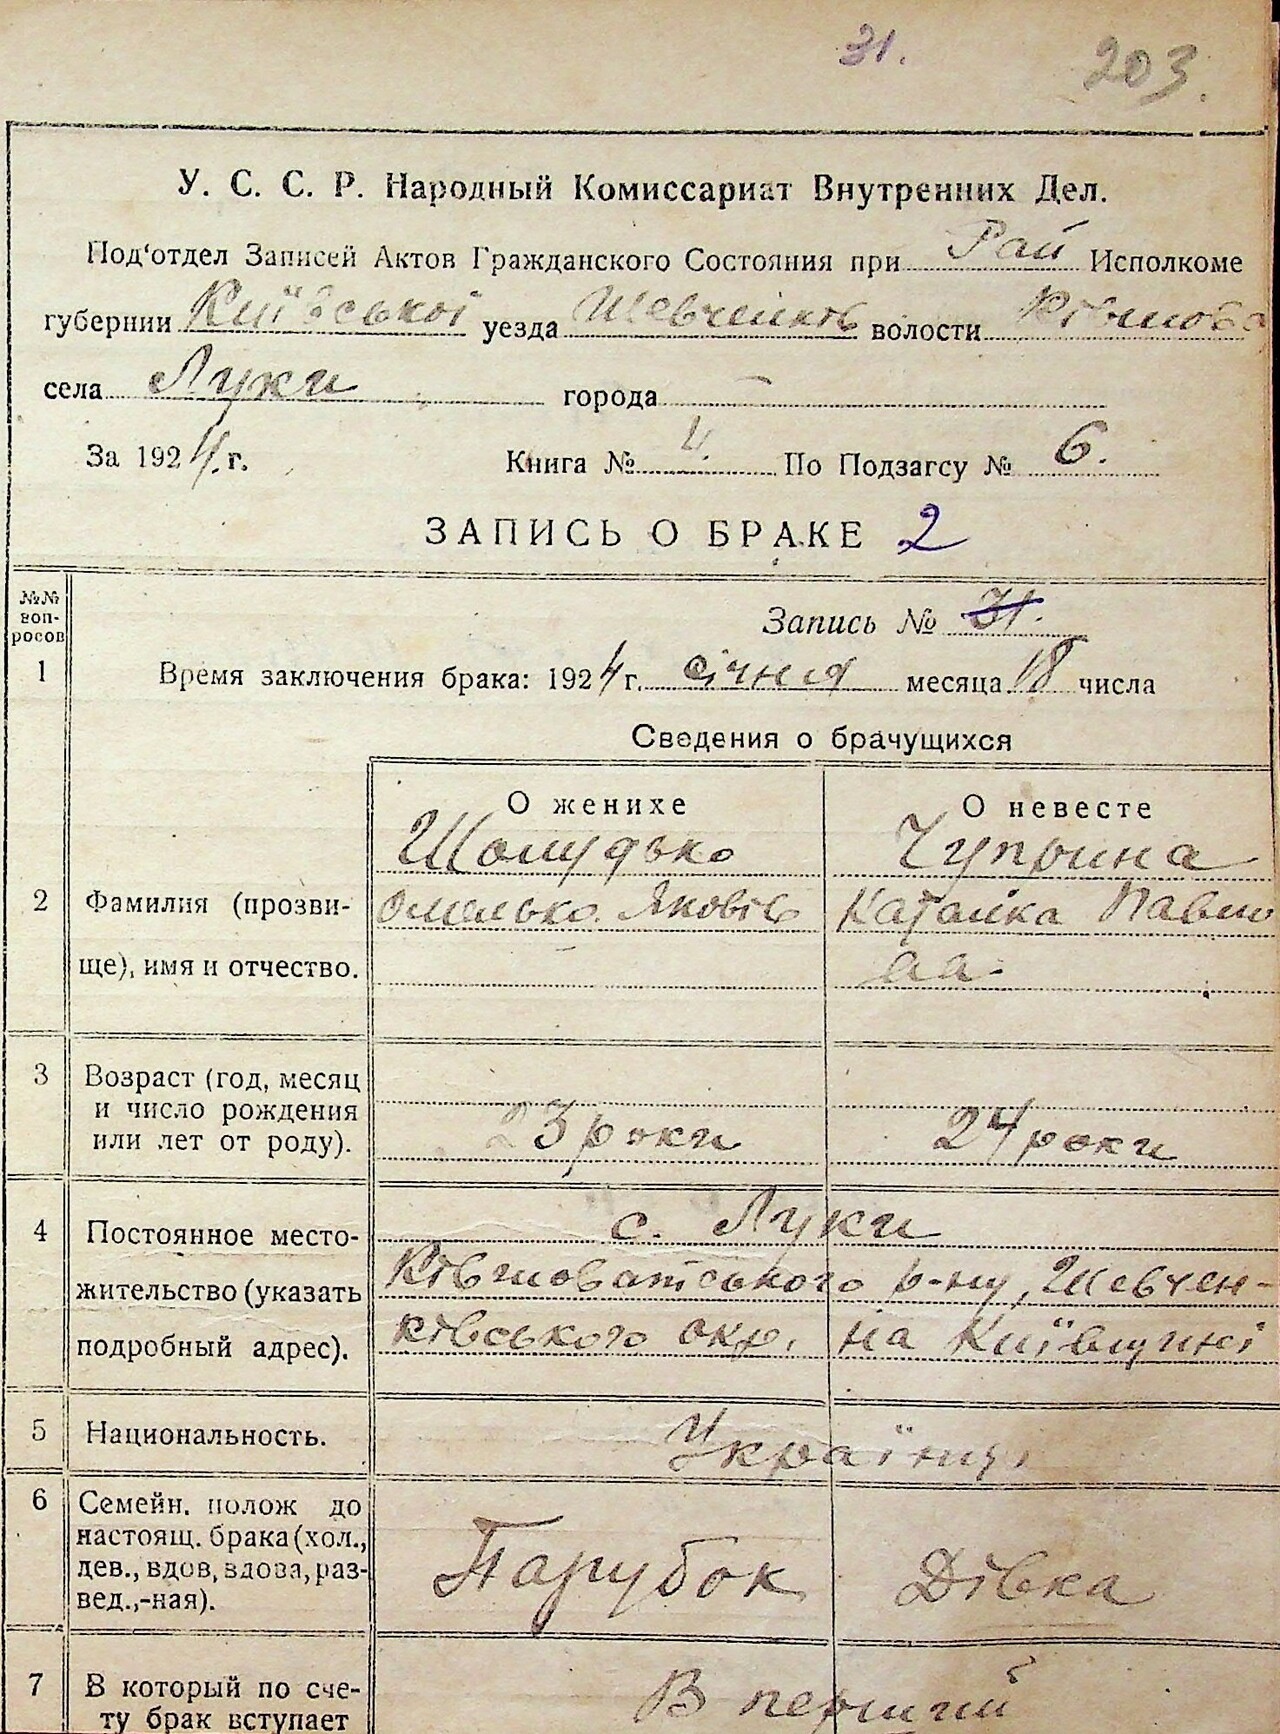 31.
203.
У. С. С. Р. Народный Комиссариат Внутренних Дел.
Под'отдел Записей Актов Гражданского Состояния при Рай Исполкоме
губернии Київської уезда Шевченків волости
села Луки города —
За 1924 г. Книга № По Подзагсу № 6.
ЗАПИСЬ О БРАКЕ 2
№№ воп- росов
Запись № 31.
1 Время заключения брака: 1924 г. січня месяца 18 числа
Сведения о брачущихся
О женихе О невесте
Шолудько Чуприна
2 Фамилия (прозви- Омелько Яковів Павло
ще), имя и отчество. ва.
3 Возраст (год, месяц
и число рождения
или лет от роду). 23 роки 24 роки
с. Луки
4 Постоянное место-
жительство (указать Ківшоватського р-ну, Шевчен-
подробный адрес). ківського окр. на Київщині
5 Национальность. Українці
6 Семейн. полож до
настоящ. брака (хол.,
дев., вдов, вдова, раз- Парубок Дівка
вед.,-ная).
7 В который по сче- В перший
ту брак вступает